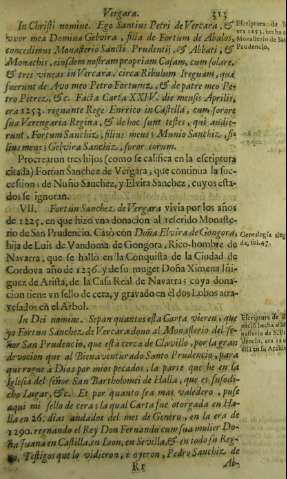 Vergara. 313
In Christi nomine. Ego Santius Petri de Vercara, &
vxor mea Domina Gelvira, filia de Fortum de Abalos,
concedimus Monasterio Sancti Prudentii, & Abbati, &
Monachis, eiusdem nostram propriam Casam, cum solare,
& tres vineas in Vercara, circa Ribulum Ireguam, quæ
fuerunt de Avo meo Petro Fortuniz, & de patre meo Pe-
tro Peirez, &c. Facta Carta XXIV. die mensis Aprilis,
era 1253. regnante Rege Enrrico in Castella, cum sorore
sua Verengaria Regina, & de hoc sunt testes, qui audie-
runt, Fortum Sanchiz, filius meus; Munio Sanchiz, fi-
lius meus; Gelvira Sanchiz, soror eorum.
Procrearon tres hijos (como se califica en la escriptura
citada) Fortun Sanchez de Vergara, que continua la suc-
cession; de Nuño Sanchez, y Elvira Sanchez, cuyos esta-
dos se ignoran.
VII. Fortun Sanchez de Vergara vivia por los años
de 1225. en que hizo vna donacion al referido Monaste-
rio de San Prudencio. Casò con Doña Elvira de Gongora,
hija de Luis de Vandoma de Gongora, Rico-hombre de
Navarra, que se hallò en la Conquista de la Ciudad de
Cordova año de 1236. y de su muger Doña Ximena Iñi-
guez de Arista, de la Casa Real de Navarra; cuya dona-
cion tiene vn sello de cera, y gravado en èl dos Lobos atra-
vesados en el Arbol.
In Dei nomine. Sepan quantos esta Carta vieren, que
yo Fortun Sanchez de Vercara dono al Monasterio del Se-
ñor San Prudencio, que està cerca de Clavillo, por la gran
devocion que al Bienaventurado Santo Prudencio, para
que rogue à Dios por mios pecados, la parte que he en la
Iglesia del señor San Bartholomei de Halia, que es susodi-
cho Lugar, &c. Et por quanto sea mas valedero, puse
aqui mi sello de cera; la qual Carta fue otorgada en Ha-
lia en 26. dias andados del mes de Genero, en la era de
1290. regnando el Rey Don Fernando cum sua mulier Do-
ña Juana en Castilla, en Leon, en Sevilla, & en todo su Reg-
Testigos que lo vidieron, è oyeron, Pedro Sanchiz, de
Rr Ab-
Monasterio de San
Prudencio.
Genealogia